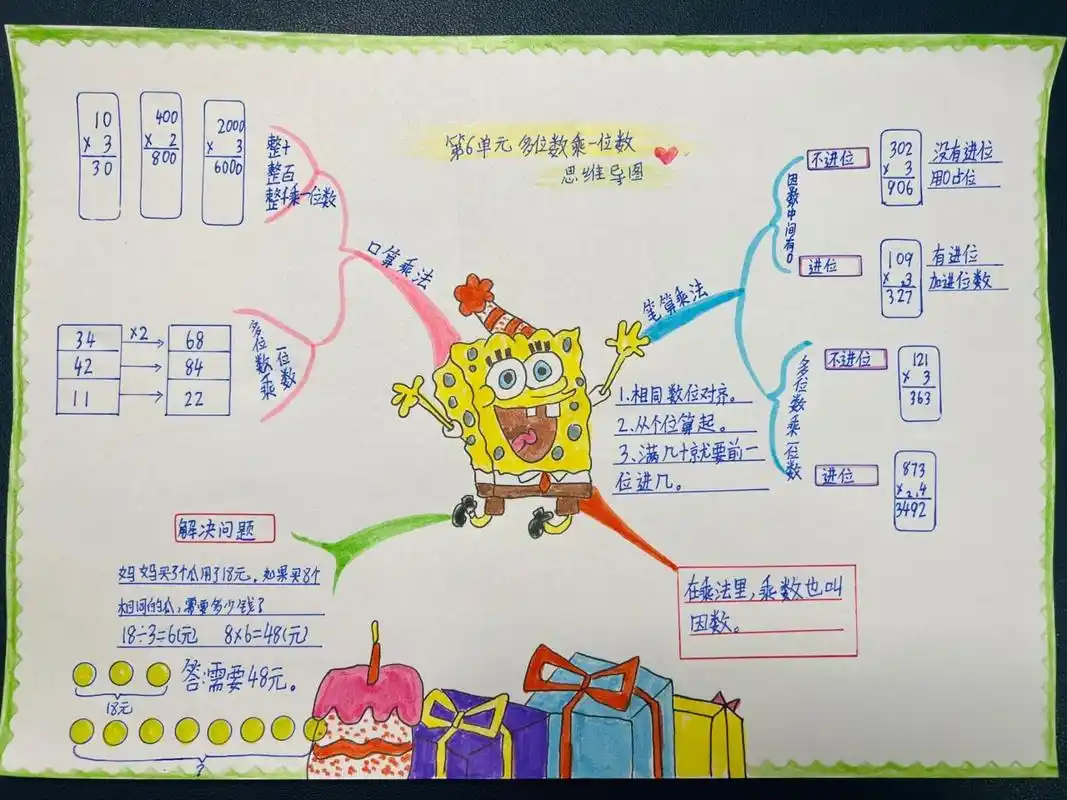 第6单元 多位数乘一位数
思维导图
口算乘法
整十
整百
整千乘一位数
10
× 3
30
400
× 2
800
2000
× 3
6000
多位数乘
一位数
34 ×2 68
42 84
11 22
笔算乘法
因数中间有0
不进位
302
× 3
906
没有进位
用0占位
进位
109
× 3
327
有进位
加进位数
多位数乘一位数
不进位
121
× 3
363
进位
873
×2,4
3492
1.相同数位对齐。
2.从个位算起。
3、满几十就要前一
位进几。
解决问题
妈妈买3个瓜用了18元。如果买8个
相同的瓜，需要多少钱？
18÷3=6(元) 8×6=48(元)
18元
答:需要48元。
?
在乘法里，乘数也叫
因数。